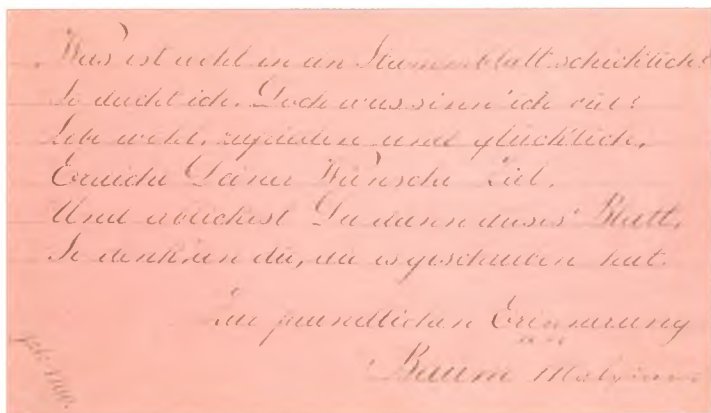 Was ist wohl in ein Stammblatt schicklich?
So dacht ich. Doch was sinn' ich viel!
Lebe wohl, zufrieden und glücklich,
Erreiche Deiner Wünsche Ziel.
Und erblickest Du dann dieses Blatt,
So denk' an die, die es geschrieben hat.
Zur freundlichen Erinnerung
Baum